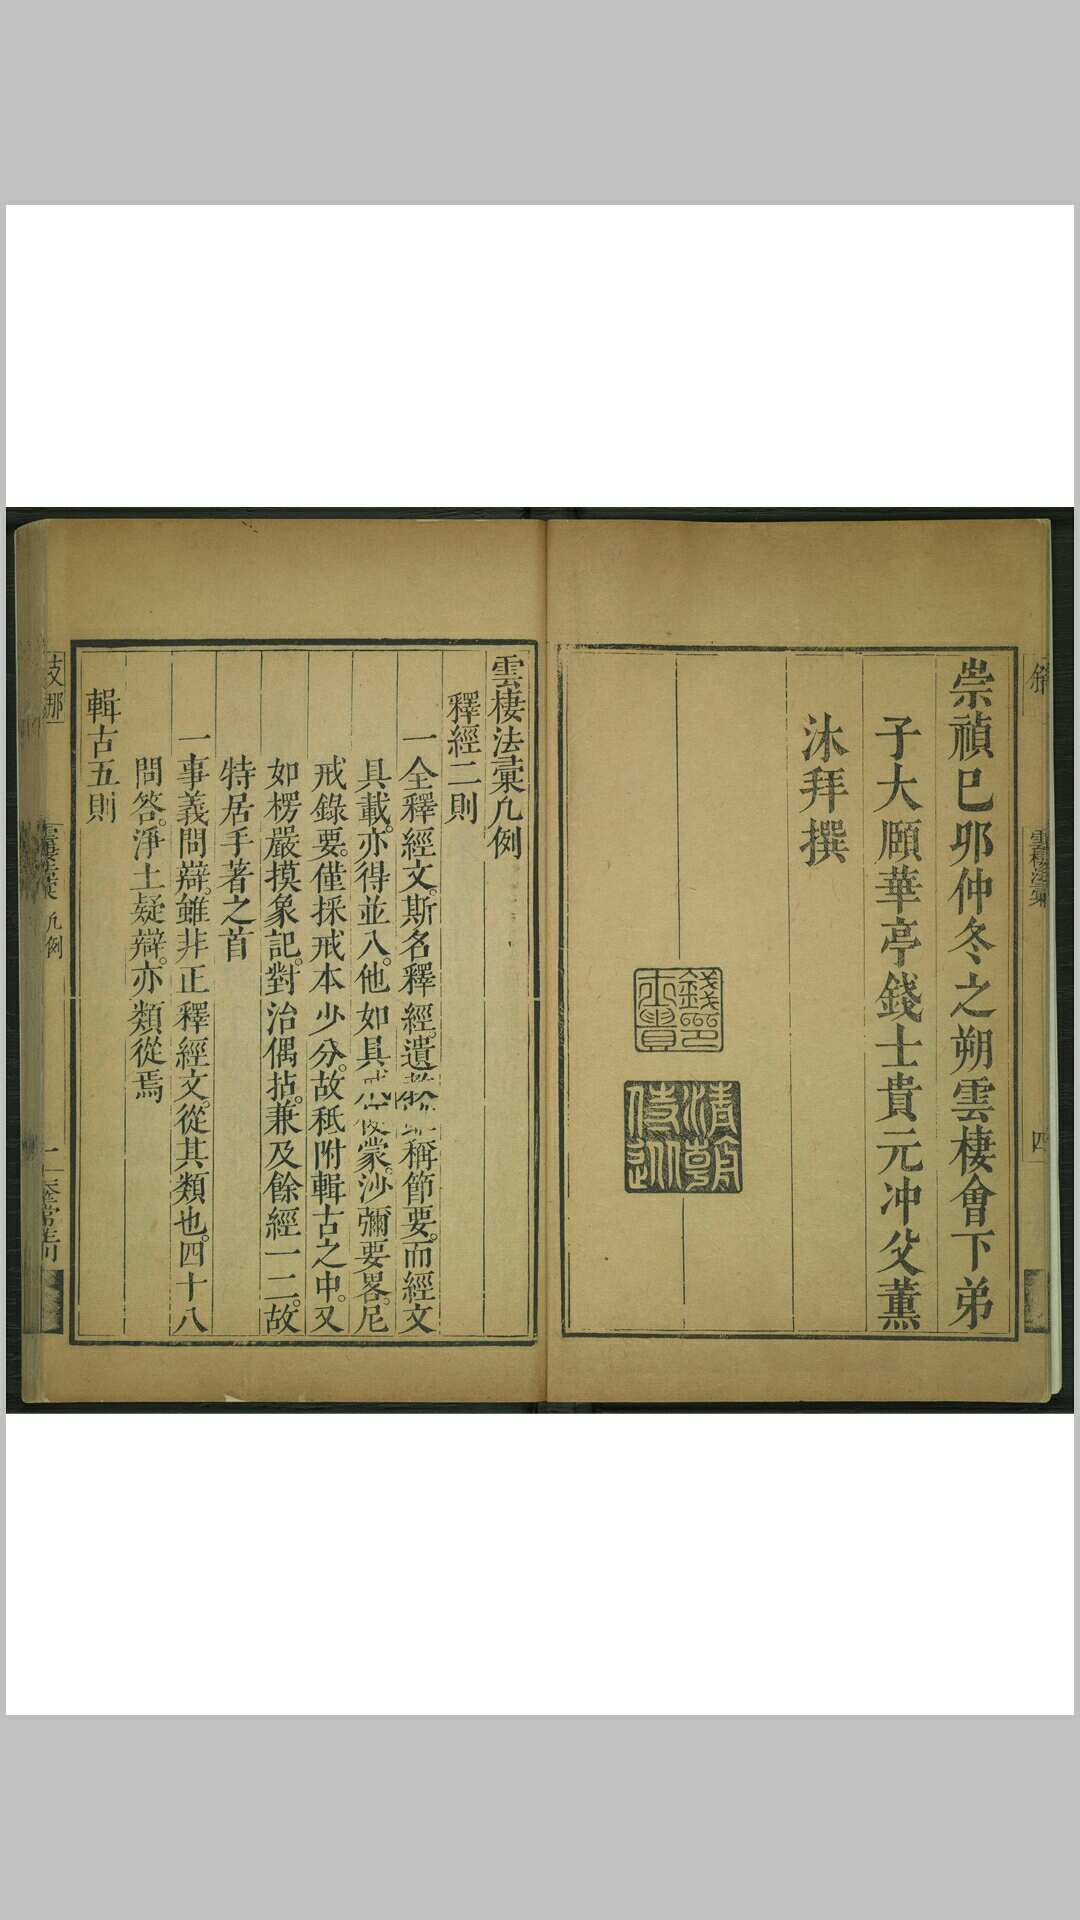 崇禎巳卯仲冬之朔雲棲會下弟
子大頤華亭錢士貴元冲父薰
沐拜撰
雲棲法彙
四
雲棲法彙凡例
釋經二則
一全釋經文。斯名釋經。遺教 稱節要。而經文
具載。亦得並入。他如具戒便蒙。沙彌要畧。尼
戒錄要。僅採戒本少分。故秪附輯古之中。又
如楞嚴摸象記。對治偶拈。兼及餘經一二。故
特居手著之首
一事義問辯。雖非正釋經文。從其類也。四十八
問答。淨土疑辯。亦類從焉
輯古五則
支那
凡例
一